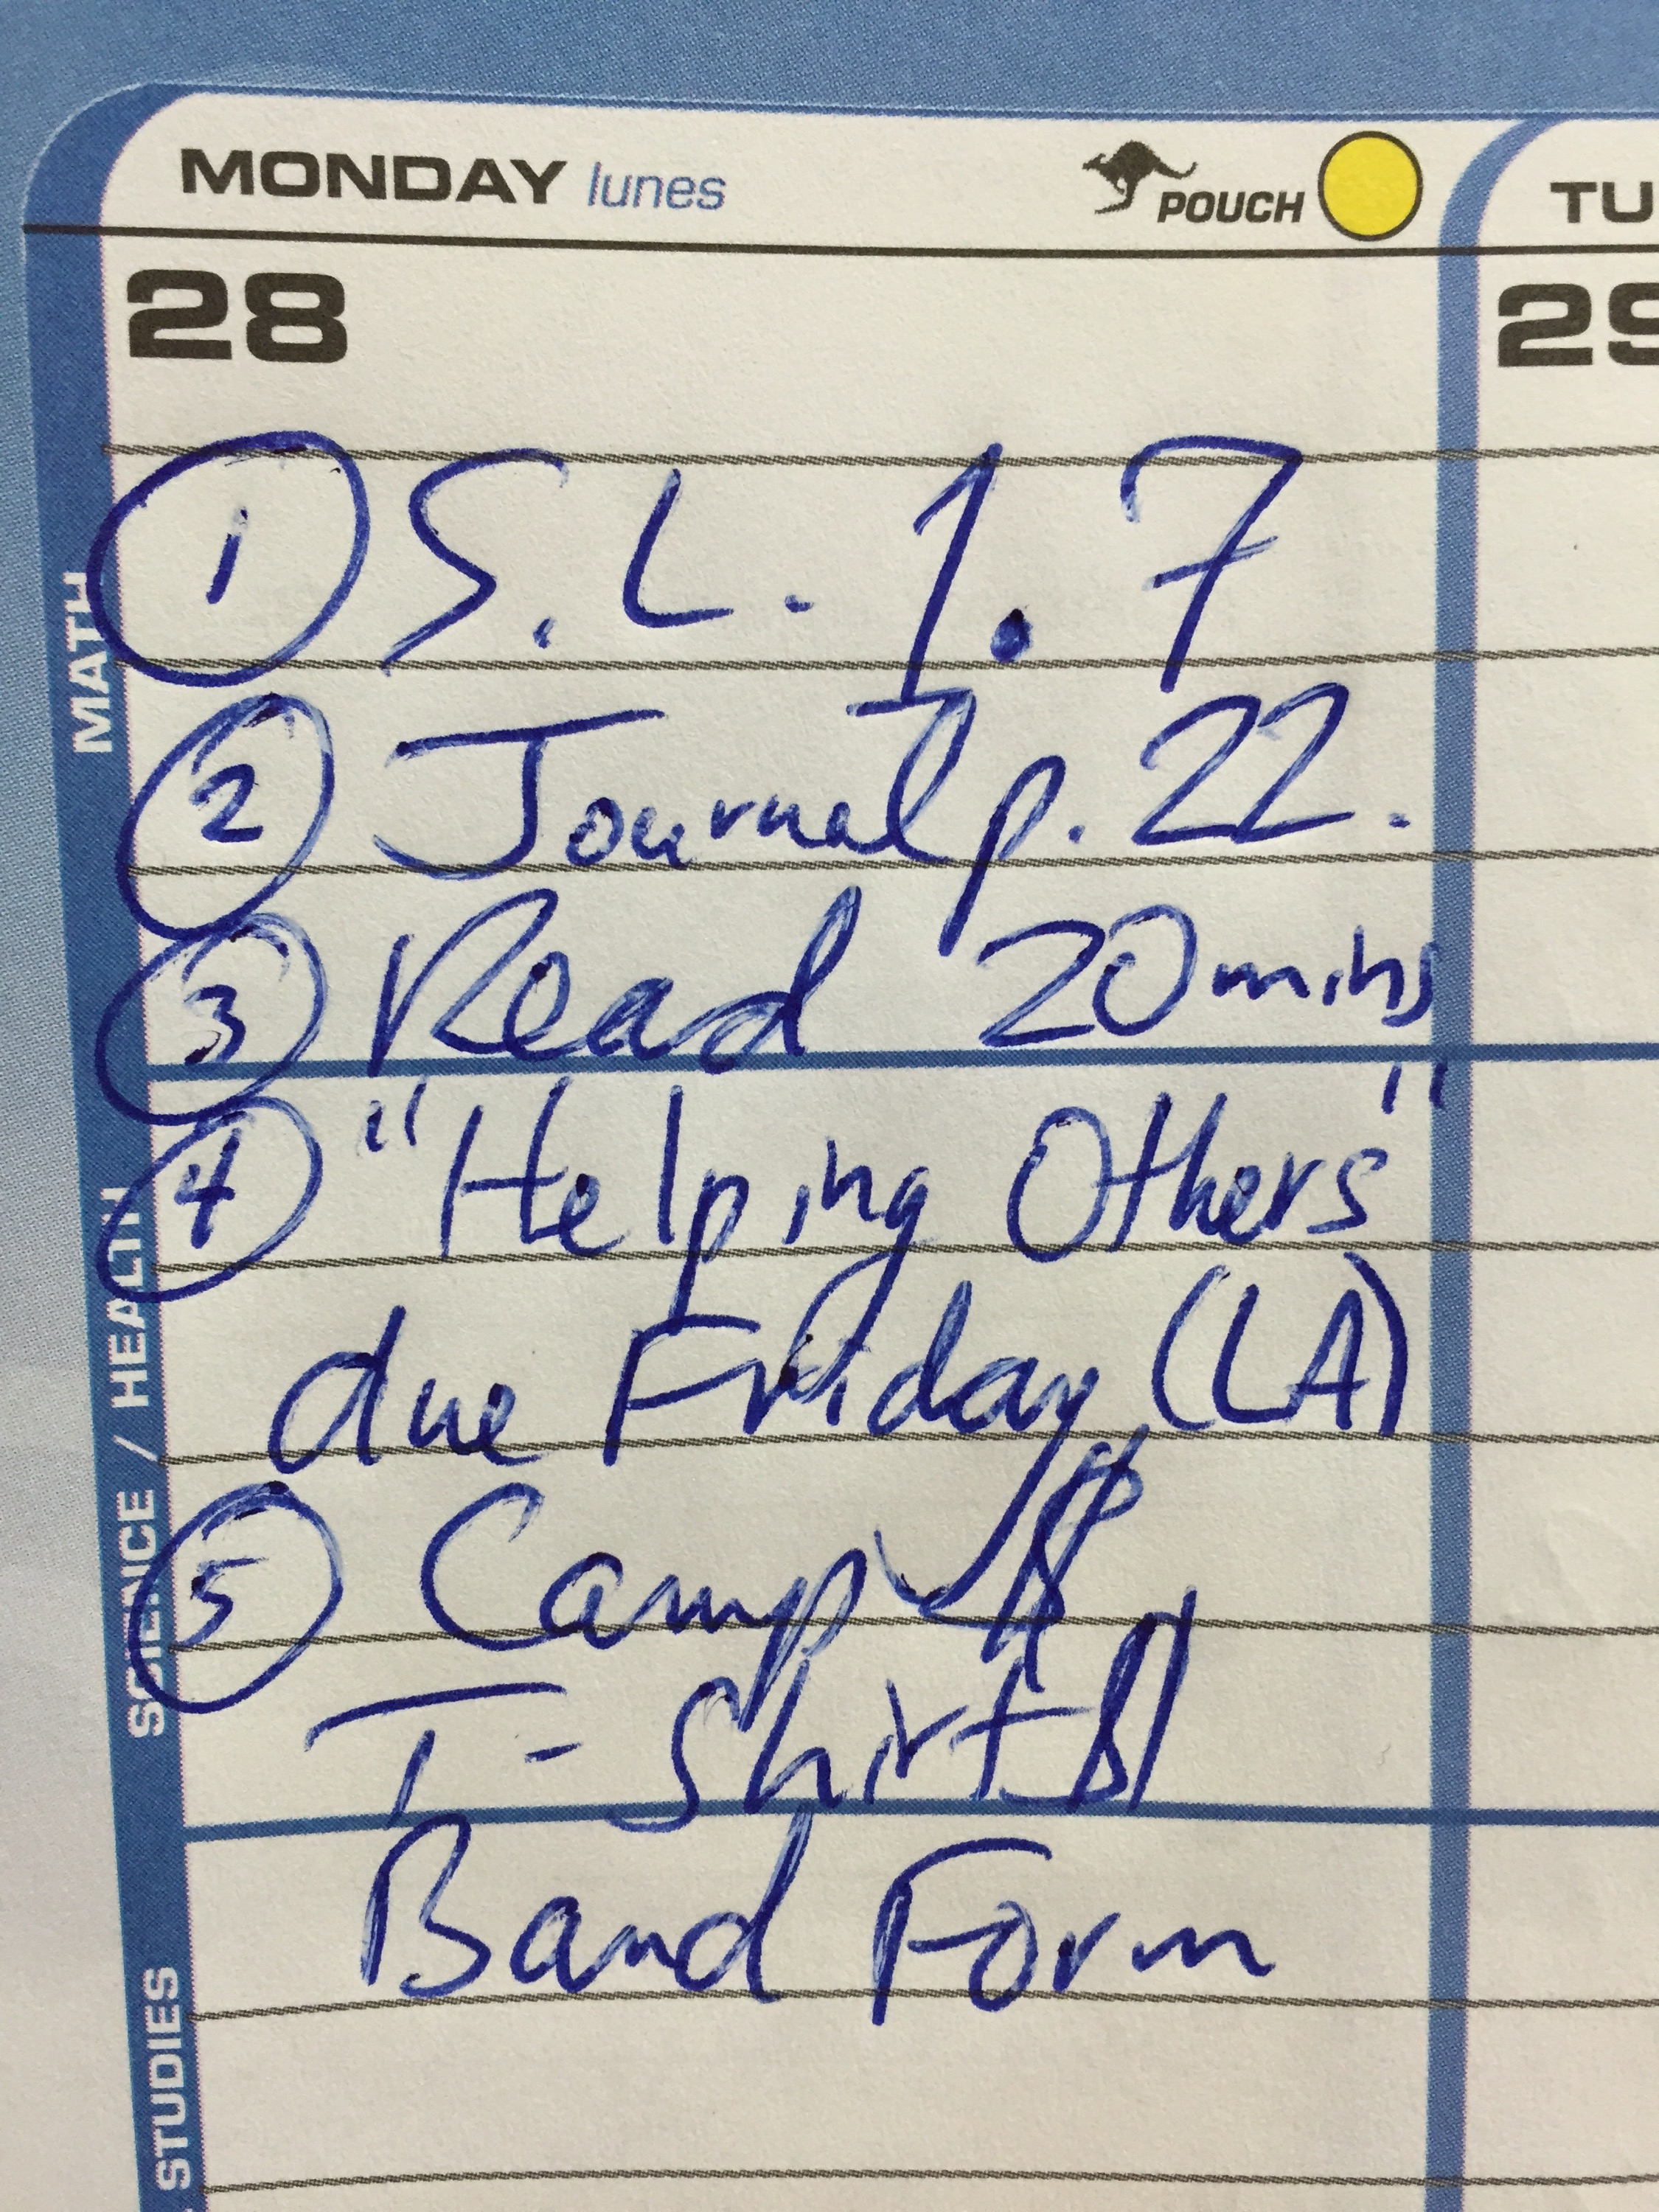 MONDAY lunes POUCH TU
28 29
MATH
① S.L. 1.7
② Journal p. 22.
③ Read 20 mins
SCIENCE / HEALTH
④ "Helping Others"
due Friday (LA)
⑤ Camp $
T-Shirt $
Band Form
STUDIES